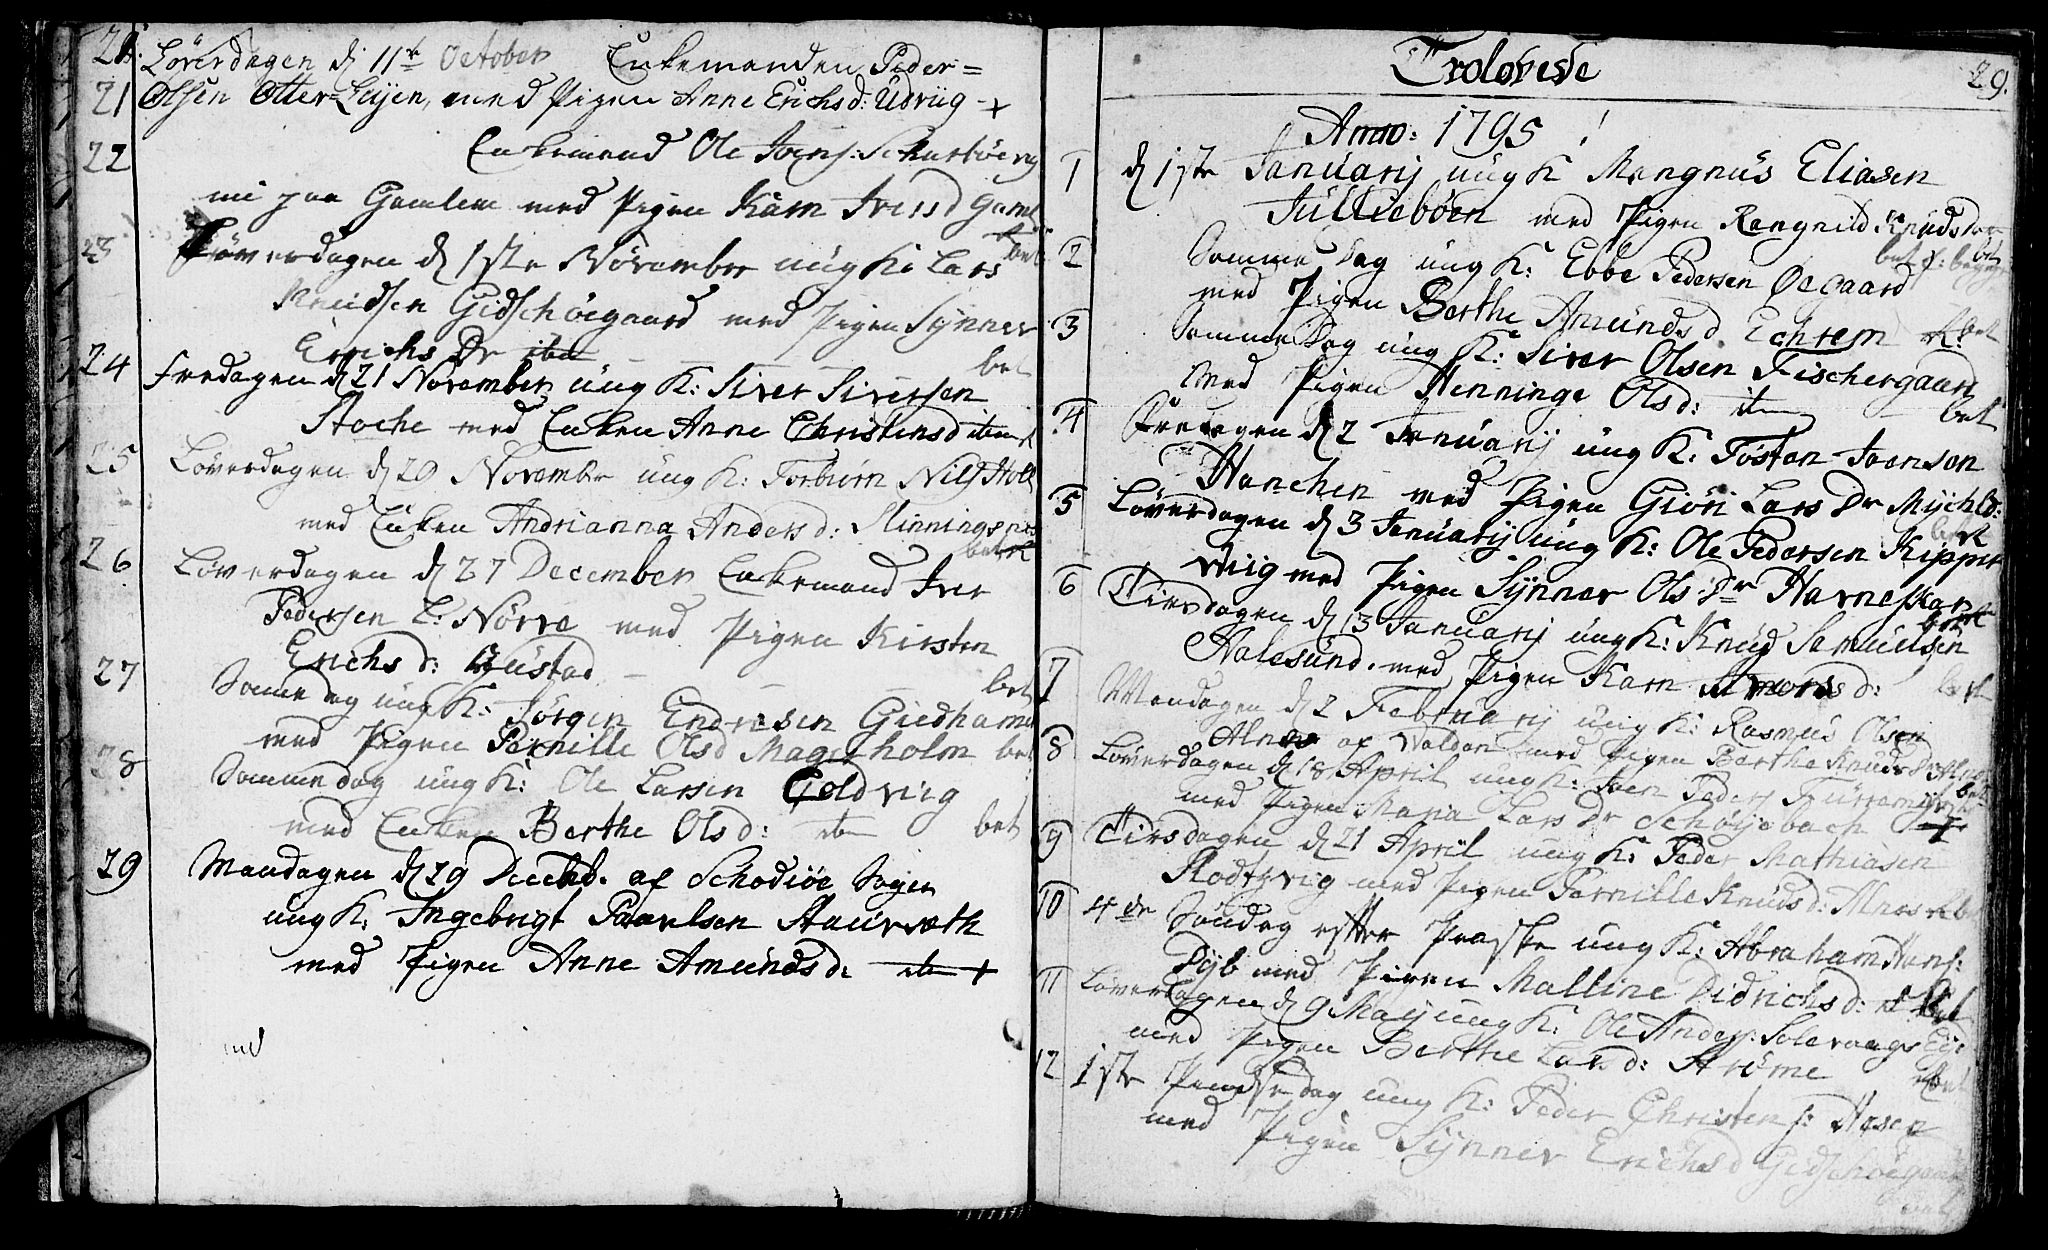 21. Löverdagen d 11te October Enkemanden Peder=
21 Olsen Otter=Leyen, med Pigen Anne Erichsd: Udviig +
22 Enkemand Ole Joens:
nie paa Gamlem med Pigen Karn Iversd Gaml
23 Löverdagen d 1ste November ung K: Lars bet
Knudsen Gidschöegaard med Pigen Synner
Erichs Dr ibm bet
24 Fredagen d 21 November ung K: Siver Siversen
Stoche med Enken Anne Christensd ibm
25 Löverdagen d 29 November ung K: Torbiörn Nils
med Enken Andrianna Andersd: Slinningsnes
bet
26 Löverdagen d 27 December Enkemand Iver
Pedersen L: Nörve med Pigen Kirsten
Erichsd: Gustad bet
27 Samme dag ung K: Jörgen Endresen Giedhamer
med Pigen Pernille Olsd Magerholm bet
28 Samme dag ung K: Ole Larsen Goldviig
med Enken Berthe Olsd: ibm bet
29 Mandagen d 29 Decbr. af Schodiöe Sogn
ung K: Ingebrigt Paavlsen Staurseth
med Pigen Anne Amundsd: ibm +
med
Trolovede 29.
Anno: 1795
1 d 1ste Januarij ung K Mangnus Eliasen
Jullieböen med Pigen Rangnild Knudsd
bet
2 Samme dag ung K: Ebbe Pedersen Öegaard
med Pigen Berthe Amundsd Echrem bet
3 Samme dag ung K: Siver Olsen Fischergaard
med Pigen Henninge Olsd: ibm bet
4 Fredagen d 2 Januarij ung K: Tosten Joensen
Hanchen med Pigen Giöri Lars Dr Mychlb:
5 Löverdagen d 3 Januarij ung K: Ole Pedersen Kipper
viig med Pigen Synner Ols:Dr Harneskar
6 Tirsdagen d 13 Januarij ung K: Knud Samuelsen
Aalesund. med Pigen Karn d: bet
7 Mandagen d 2 Februarij ung K: Rasmus Olsen
Alnes af Walderö med Pigen Berthe Knuds Dr Alnes
bet
8 Löverdagen d 18 April ung K: Joen Peders
med Pigen Maria Lars Dr Schotjebach +
9 Tirsdagen d 21 April ung K: Peder Mathiasen
Slodtzviig med Pigen Pernille Knudsd: Alnes bet
10 4de Söndag efter Paaske ung K: Abraham Hans:
Dyb med Pigen Malline Didrichsd: bet
11 Löverdagen d 9 Maij ung K: Ole Anders: Solevaags Eje
med Pigen Berthe Larsd: Ströme bet
12 1ste Pindsedag ung K: Peder Christens: Aasen
med Pigen Synner Erichsd Gidschöegaard
bet